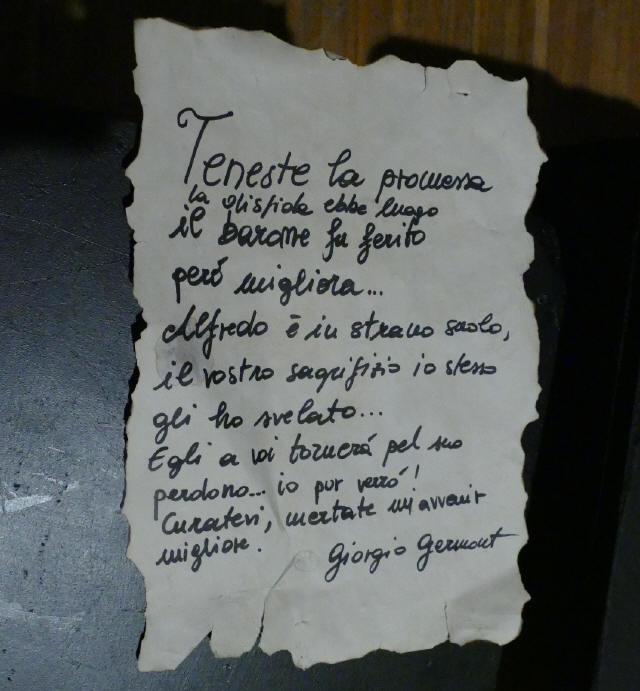 Teneste la promessa
la disfida ebbe luogo
il barone fu ferito
peró migliora...
Alfredo è in strano suolo,
il vostro sagrifizio io stesso
gli ho svelato...
Egli a voi tornerá pel suo
perdono... io pur verró!
Curatevi, mertate un avvenir
migliore.
Giorgio Germont